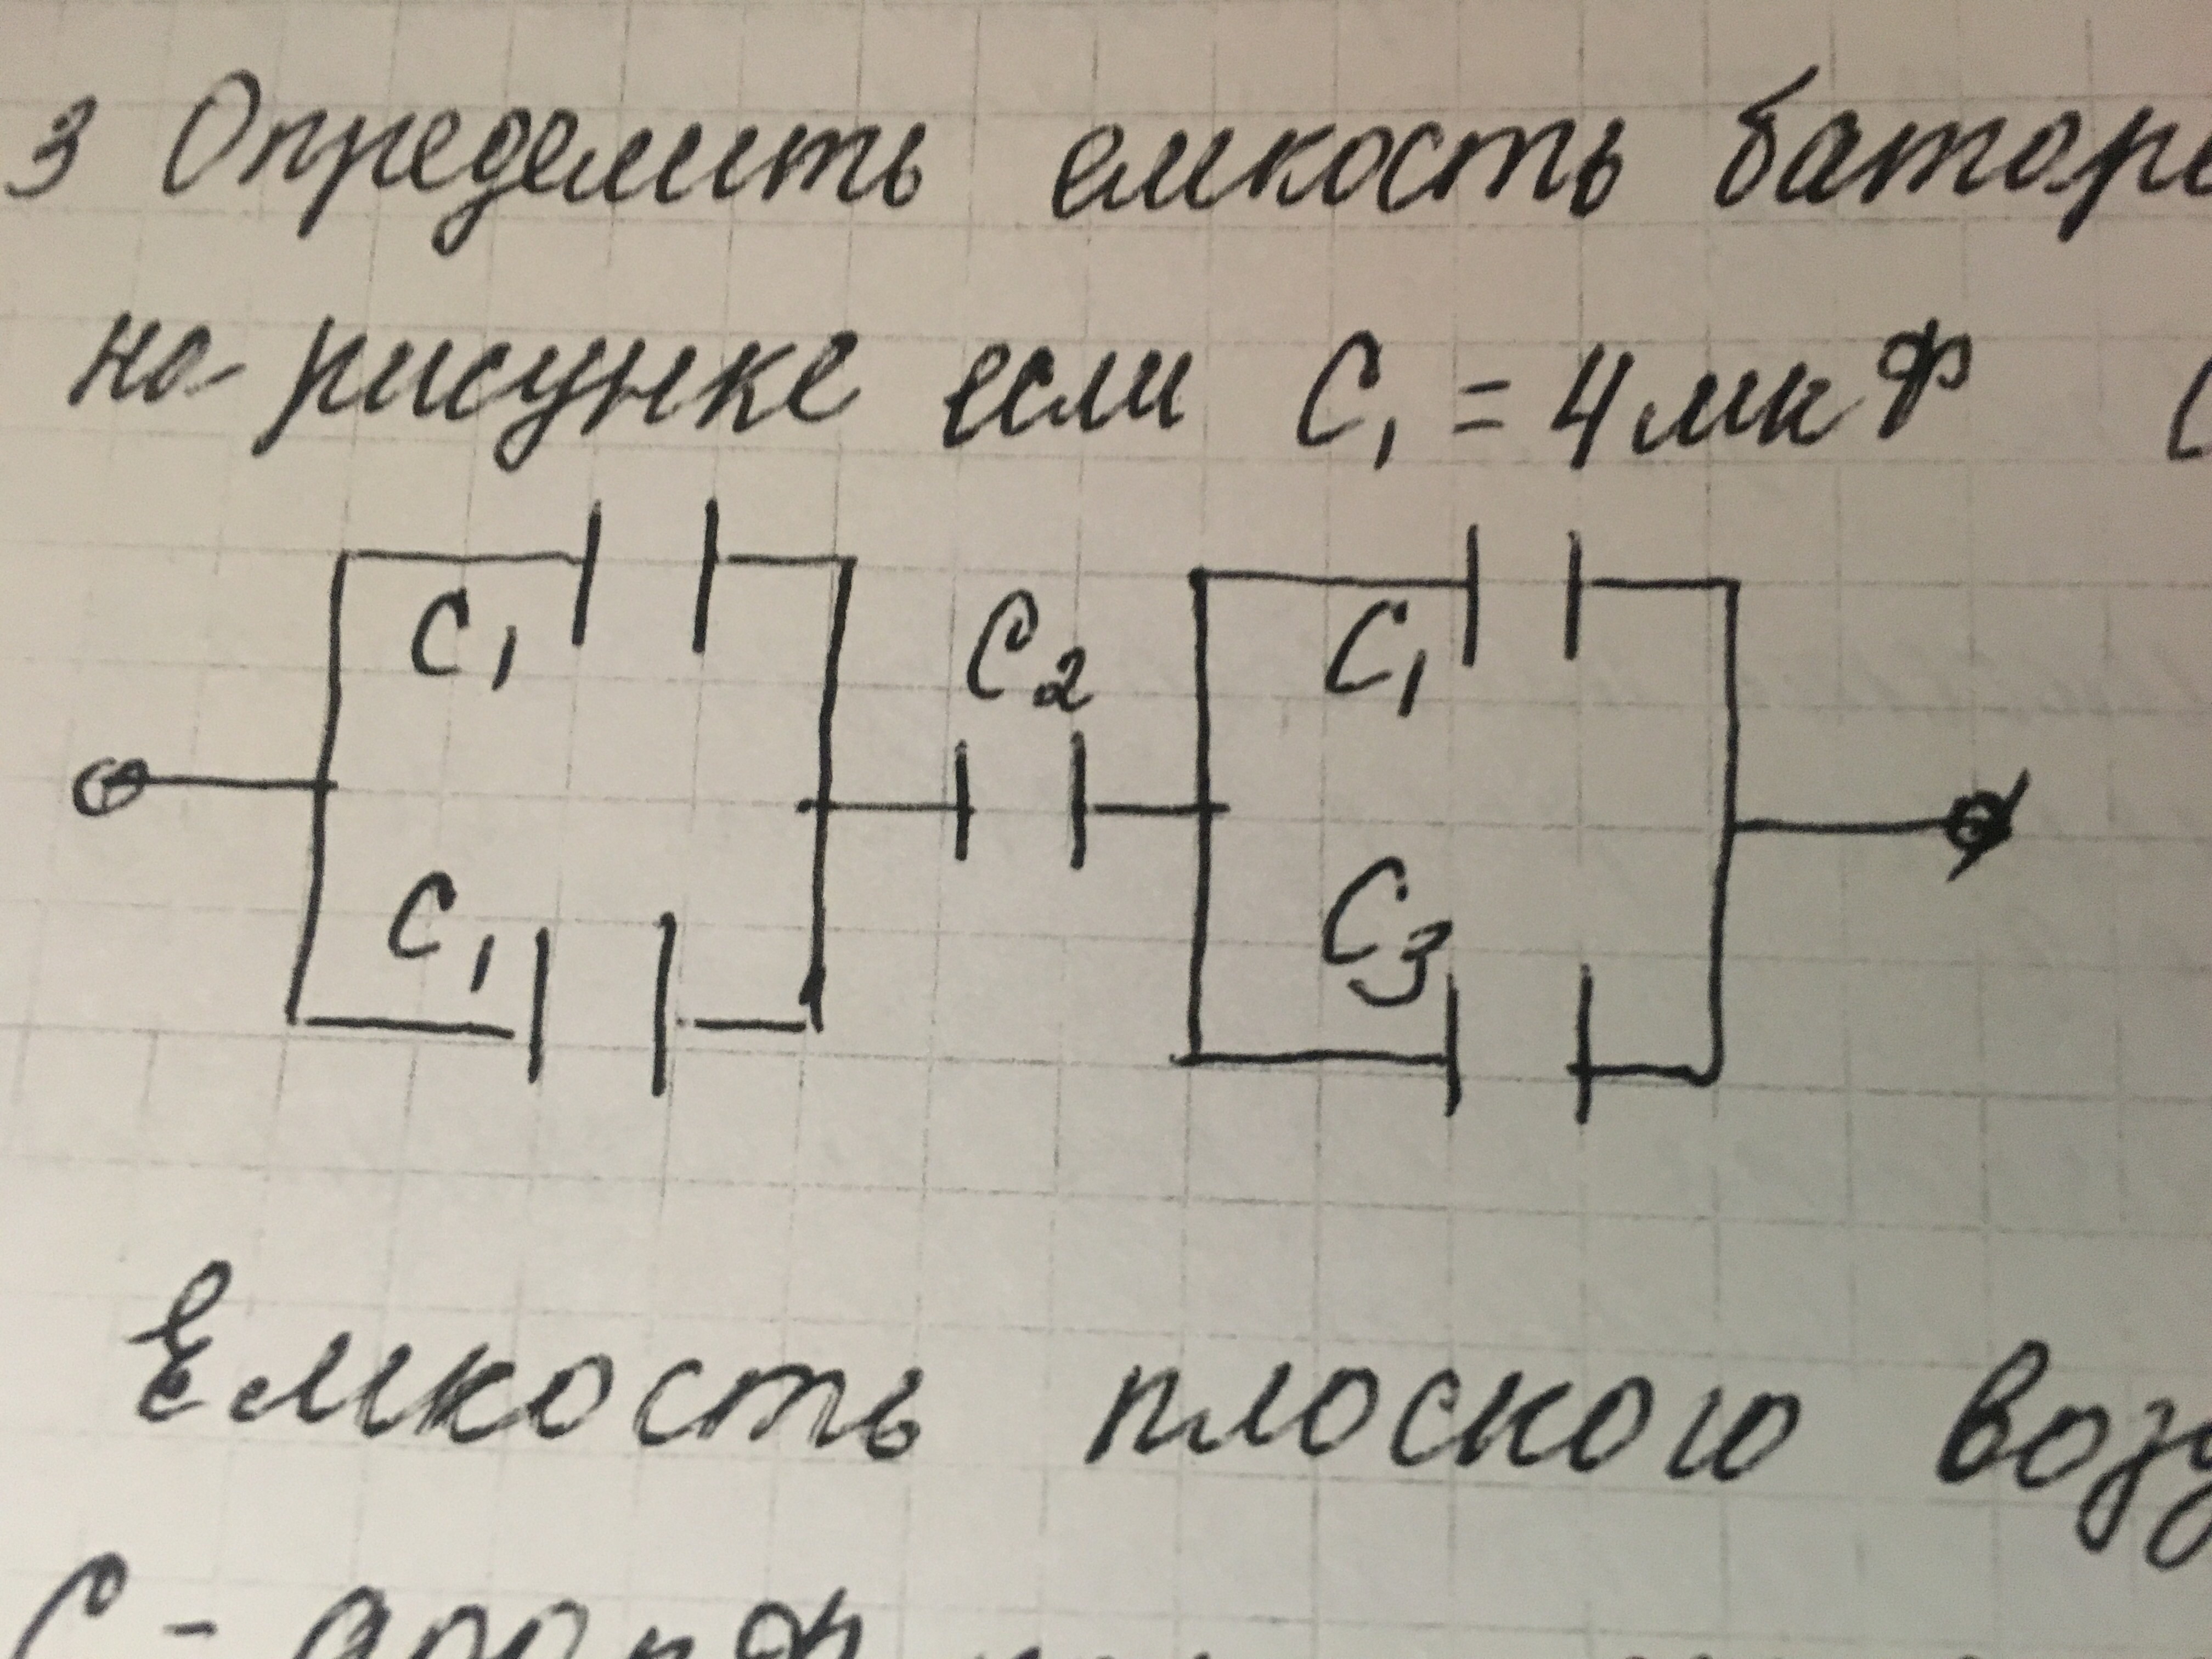 3 Определить емкость баторе
на рисунке если C₁ = 4 мкФ C
C₁ C₂ C₁
C₁ C₃
Емкость плоского возд